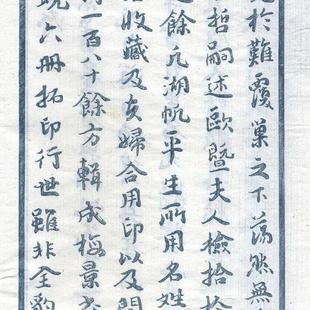 於難覆巢之下蕩然無
哲嗣述歐暨夫人檢拾
餘凡湖帆平生所用名姓
收藏及夫婦合用印以及閒
一百八十餘方輯成梅景
六冊拓印行世雖非全豹